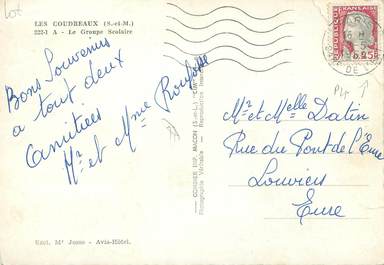 LES COUDREAUX (S.-et-M.)
222-1 A - Le Groupe Scolaire
Bons Souvenirs
a tout deux
Amitiées
Mr et Mme
Mr et Melle Datin
Rue du Pont de l'Eure
Louviers
Eure
REPUBLIQUE FRANÇAISE
0.25
COMBIER IMP. MACON (S.-et-L.)
Photographie Véritable - Reproduction Interdite
Excl. Mr Josse - Avis-Hôtel.